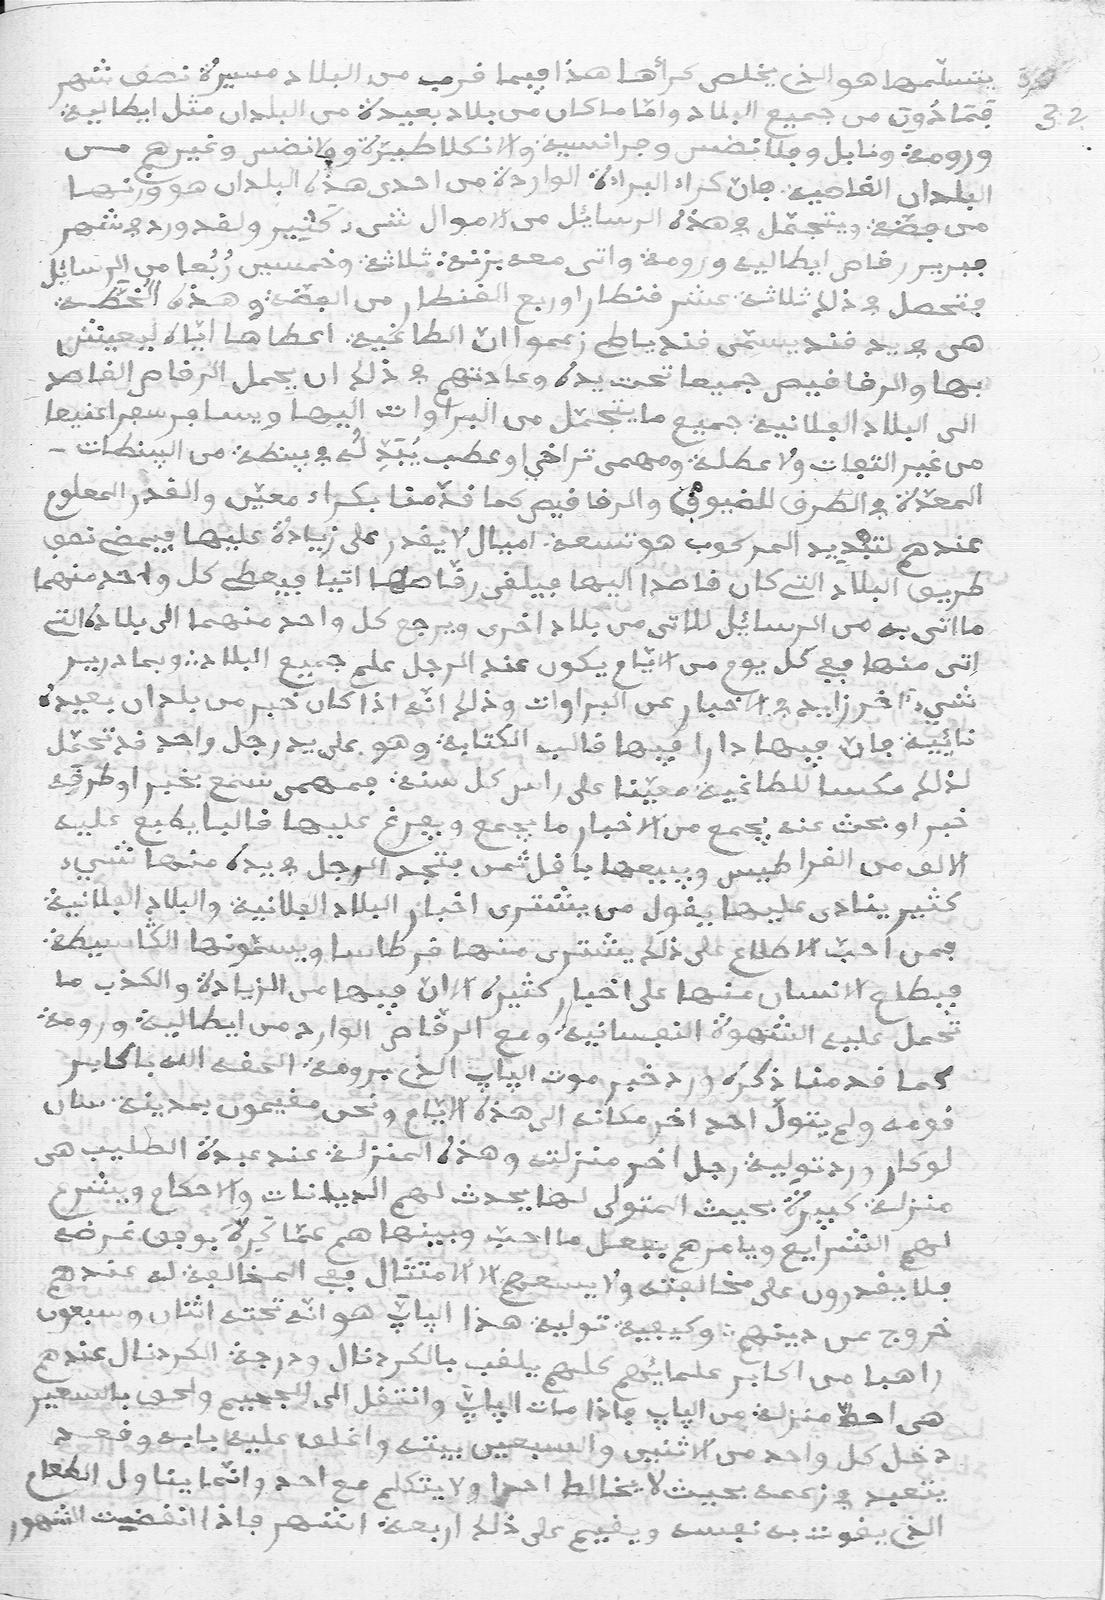 يتسلّمها هو الذي يخلص كرأها هذا فيما قرب من البلاد مسيرة نصف شهر
فما دُون من جميع البلاد وامّا ما كان من بلاد بعيدة من البلدان مثل ايطالية
ورومة ونابل وفلانضس وفرانسية والانكلاطيرّة وولانضس وغيرهم من
البلدان القاصية فانّ كراء البراءة الواردة من احدى هذه البلدان هو وزنها
من فضّة ويتجمّل في هذه الرسائل من الاموال شيء كثير ولقد ورد في شهر
فبرير رقاص ايطالية ورومة واتى معه بزنة ثلاثة وخمسين رُبُعا من الرسائل
فتحصل في ذلك ثلاثة عشر قنطارا وربع القنطار من الفضّة وهذه الخُطّة
هي في يد قند يسمّى قند ياطي زعموا انّ الطاغية اعطاها ايّاه ليعيش
بها والرقاقيص جميعا تحت يده وعادتهم في ذلك ان يحمل الرقاص القاصد
الى البلاد الفلانية جميع ما يتجمّل من البراوات اليها ويسافر سفرا عنيفا
من غير التفات ولا عطلة ومهمى تراخى او عطب يُبَدِّلُه في بينطة من البينطات
المعدّة في الطرق للضيوف والرقاقيص كما قدّمنا بكراء معيّن والقدر المعلوم
عندهم لتبديد المركوب هو تسعة اميال لا يقدر على زيادة عليها فيمضي نصف
طريق البلاد التي كان قاصدا اليها فيلقى رقّاصها اتيا فيعطي كل واحد منهما
ما اتى به من الرسائل للاتي من بلاد اخرى ويرجع كل واحد منهما الى بلاده التي
اتى منها ففي كل يوم من الايّام يكون عند الرجل علم جميع البلاد وبمادريد
شيء اخر زايد في الاخبار عن البراوات وذلك انّه اذا كان خبر من بلدان بعيدة
نائية فانّ فيها دارا فيها قالب الكتابة وهو على يد رجل واحد قد تحمّل
لذلك مكسا للطاغية معيّنا على راس كل سنة فمهمى سمع بخبر او طرقه
خبر او بحث عنه يجمع من الاخبار ما يجمع ويفرغ عليها قالبا يطبع عليه
الالف من القراطيس ويبيعها باقل ثمن فتجد الرجل في يده منها شيء
كثير ينادى عليها يقول من يشترى اخبار البلاد الفلانية والبلاد الفلانية
فمن احبّ الاطلاع على ذلك يشترى منها قرطاسا ويسمّونها الكّاسيطة
فيطلع الانسان منها على اخبار كثيرة الا انّ فيها من الزيادة والكذب ما
تحمل عليه الشهوة النفسانية ومع الرقّاص الوارد من ايطالية ورومة
كما قدمنا ذكره ورد خبر موت الپاپ الذي برومة الحقه الله باكابر
قومه ولم يتولّ احد اخر مكانه الى هذه الايّام ونحن مقيمون بمدينة سان
لوكار ورد تولية رجل اخر منزلته وهذه المنزلة عند عبدة الصليب هي
منزلة كبيرة بحيث المتولى لها يحدث لهم الديانات والاحكام ويشرع
لهم الشرايع ويامرهم بفعل ما احبّ وينهاهم عمّا كرِهَ بوفق غرضه
فلا يقدرون على مخالفته ولا يسعهم الا الامتثال ففي المخالفة له عندهم
خروج عن دينهم وكيفية تولية هذا الپاپّ هو انّه تحته اثنان وسبعون
راهبا من اكابر علمائهم كلهم يلقب بالكردنال ودرجة الكردنال عندهم
هي احطّ منزلة من الپاپ فاذا مات الپاپّ وانتقل الى الجحيم ولحق بالسعير
دخل كل واحد من الاثنين والسبعين بيته واغلق عليه بابه وقعد
يتعبد في زعمه بحيث لا يخالط احدا ولا يتكلم مع احد وانّما يناول الطعام
الذي يقوت به نفسه ويقيم على ذلك اربعة اشهر فاذا انقضيت الشهور